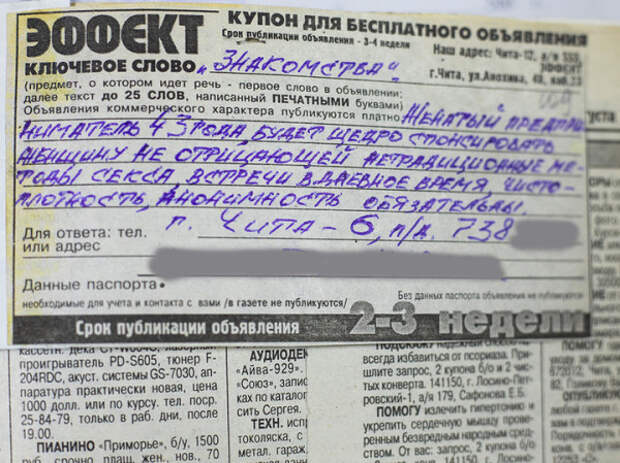 ЭФФЕКТ
КУПОН ДЛЯ БЕСПЛАТНОГО ОБЪЯВЛЕНИЯ
Срок публикации объявления - 3-4 недели
Наш адрес: Чита-12, а/я 555,
ЭФФЕКТ
г.Чита, ул.Анохина,
КЛЮЧЕВОЕ СЛОВО „ЗНАКОМСТВА"
(предмет, о котором идет речь - первое слово в объявлении;
далее текст до 25 СЛОВ, написанный ПЕЧАТНЫМИ буквами)
Объявления коммерческого характера публикуются платно ЖЕНАТЫЙ ПРЕДПРИ
НИМАТЕЛЬ 43 ГОДА, БУДЕТ ЩЕДРО СПОНСИРОВАТЬ
ЖЕНЩИНУ НЕ ОТРИЦАЮЩЕЙ НЕТРАДИЦИОННЫЕ МЕ-
ТОДЫ СЕКСА. ВСТРЕЧИ В ДНЕВНОЕ ВРЕМЯ, ЧИСТО-
ПЛОТНОСТЬ, АНОНИМНОСТЬ ОБЯЗАТЕЛЬНЫ.
Для ответа: тел. г. ЧИТА-6, п/д. 738
или адрес
Данные паспорта
необходимые для учета и контакта с вами /в газете не публикуются/
Без данных паспорта объявления не публикуются
Срок публикации объявления 2-3 недели
августа
кассетн. дека
проигрыватель PD-S605, тюнер F-
204RDC, акуст. системы GS-7030, ап-
паратура практически новая, цена
1000 долл. или по курсу. тел. поср.
25-84-79, только в раб. дни, после
19.00.
ПИАНИНО «Приморье», б/у, 1500
руб. срочно. плащ, жен., нов., 70
АУДИОДЕ
«Айва-929».
«Союз», запис
ках по каталог
сить Сергея.
ТЕХН. исп
токоляска, с
метал. гараж,
ПОДСКАЖУ надежный способ,
всегда избавиться от псориаза. При
запрос, 2 купона б/о и 2 чис-
тых конверта. 141150, г. Лосино-Пет-
ровский-1, а/я 179, Сафонова Е.Б.
ПОМОГУ излечить гипертонию и
укрепить сердечную мышцу прове-
ренным безвредным народным сред-
ством. От вас: запрос, 2 купона б/о,
2 чистых конверта. 141150, г. Лоси-